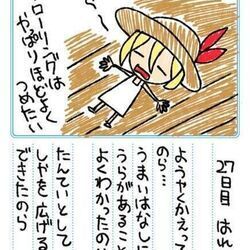 〜
ローリングは
やっぱりほどよく
つめたい
27日目 はれ
ようやくかえっ
のら…
うまいはなしに
うらがあること
よくわかったの
たんていとして
しやを広げる
できたのら